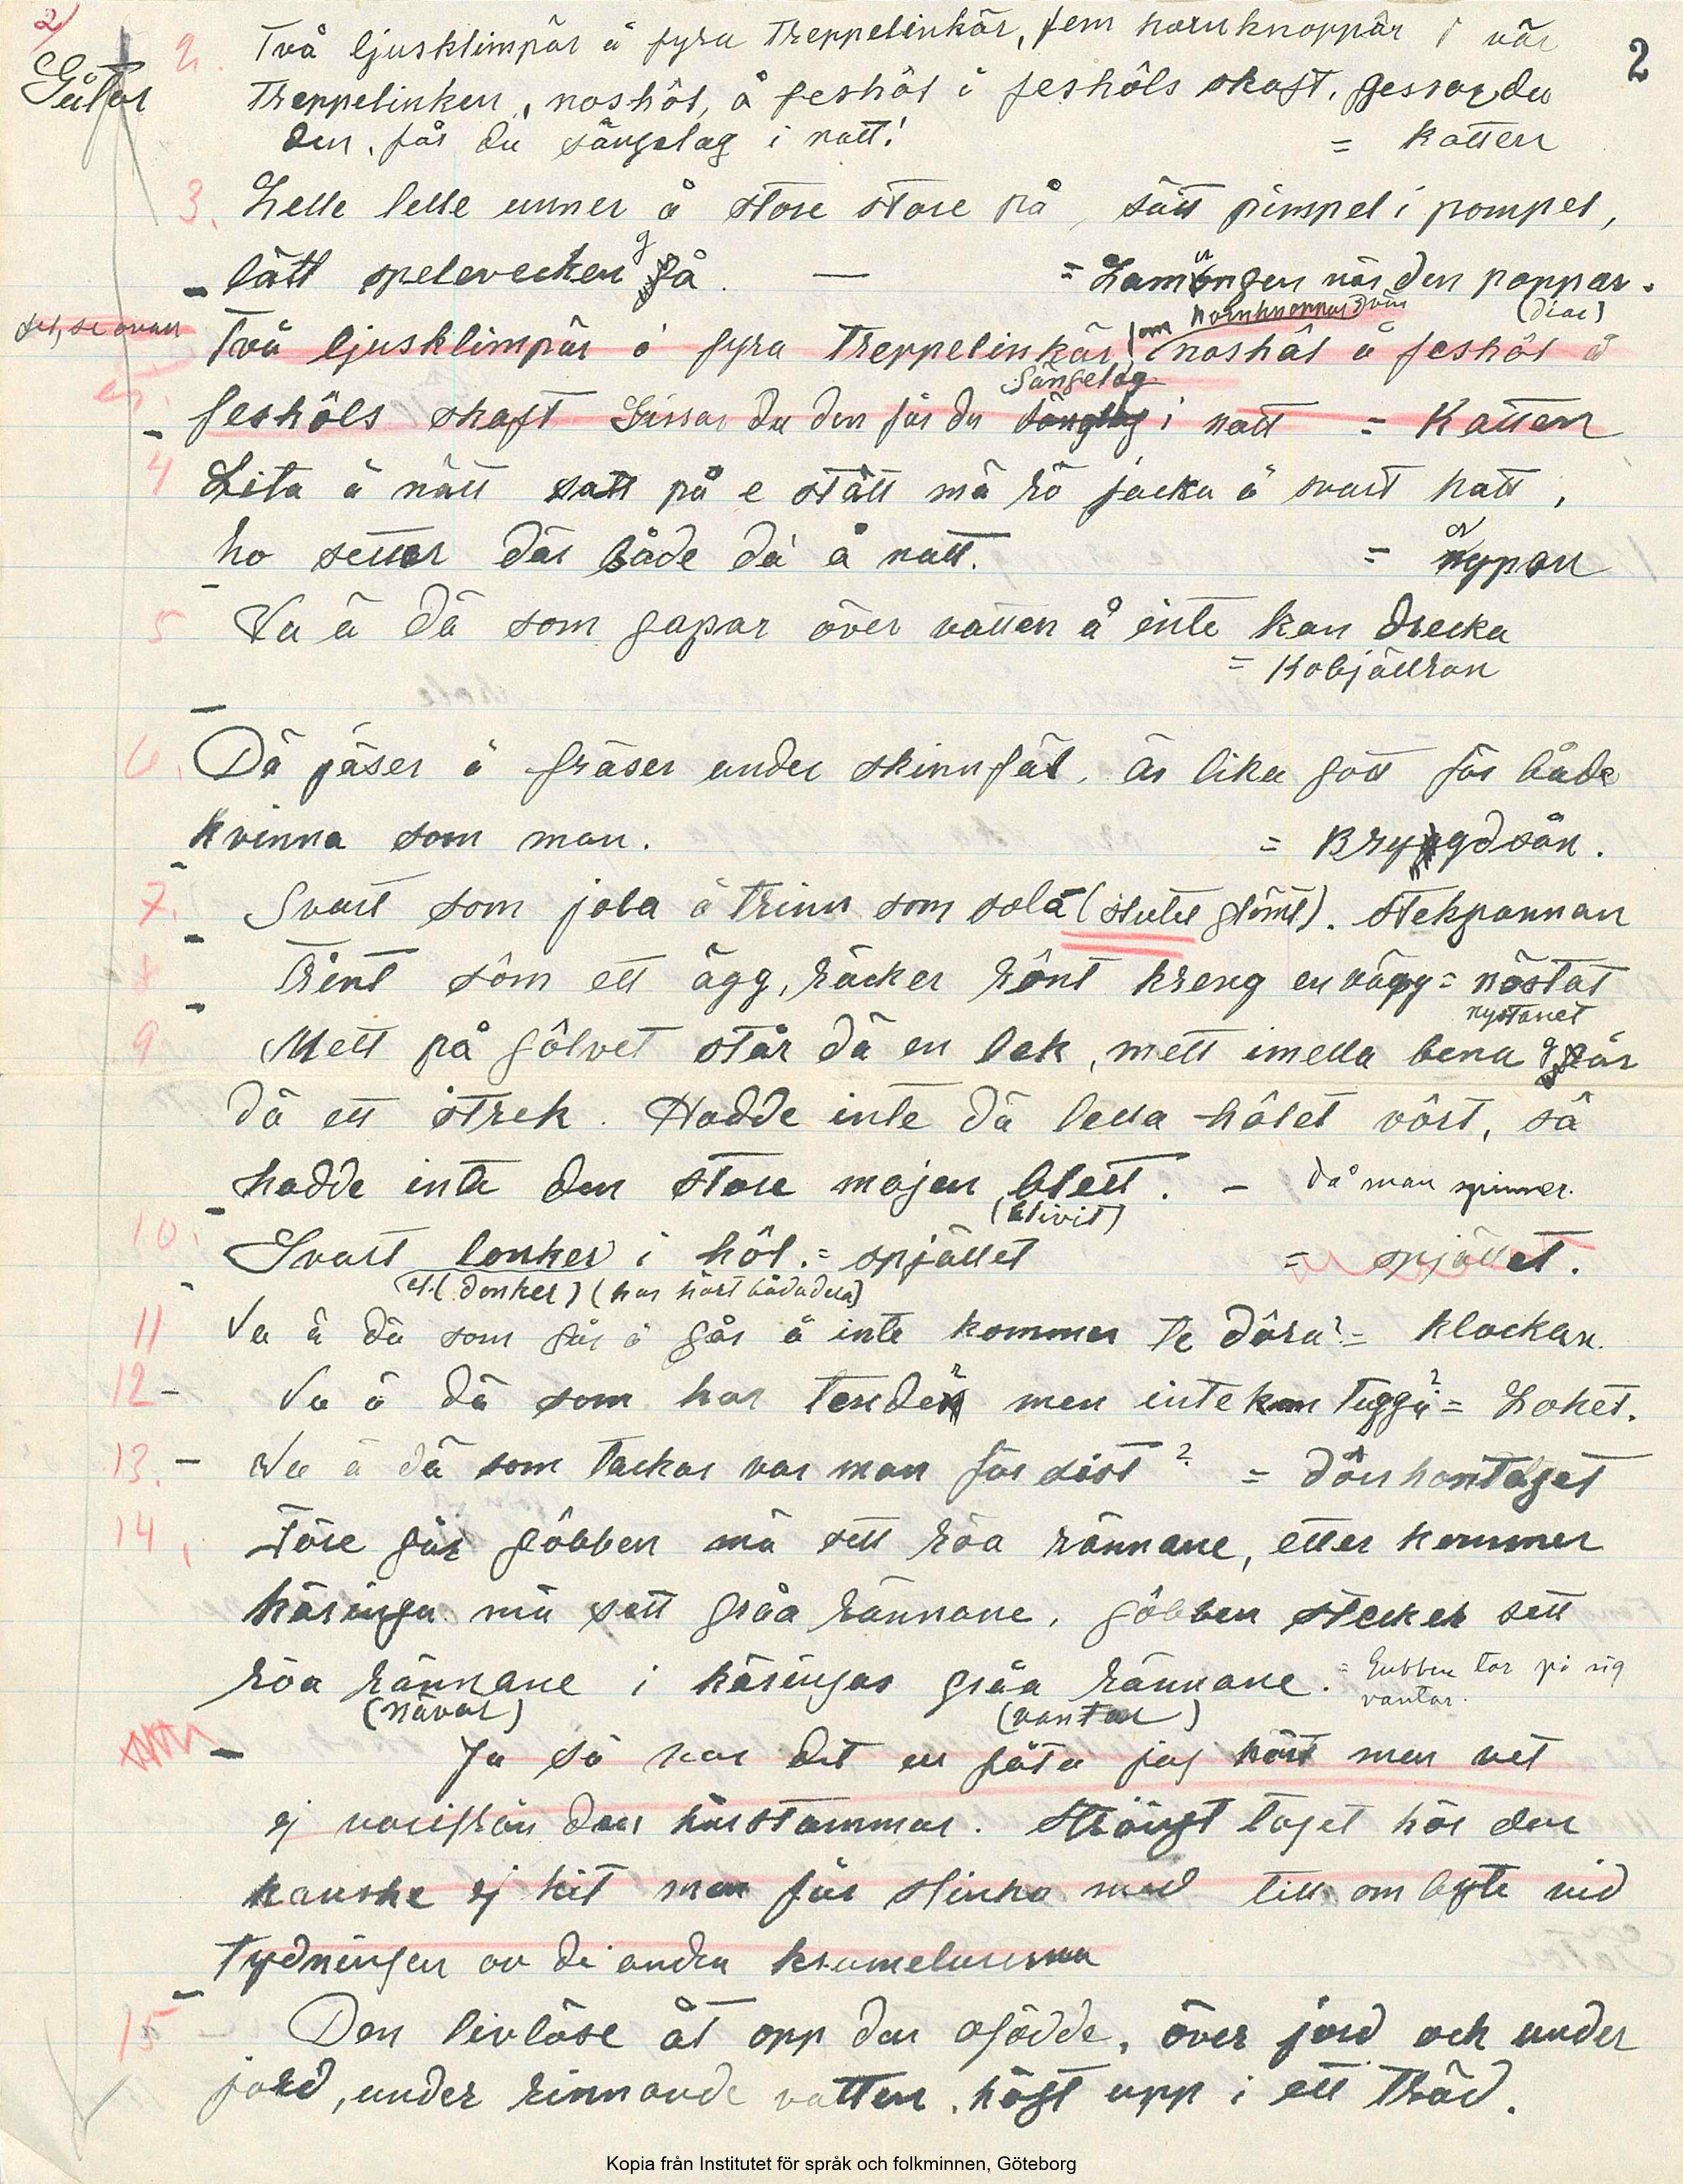 2/
2
Gåtor
2. Två ljusklimpär å fyra Treppelinkär, fem hornknoppär i vär
Treppelinken, noshôl, å feshôl å feshôls skaft. gessar du
den, får du sängelag i natt! = katten
3. Lelle lelle unner å store store på, sätt pimpel i pompel,
lätt spelevecken gå. — = Lamungen när den pappar.
(diar)
sel, se ovan
Två ljusklimpär å fyra Treppelinkär, fem hornknoppar i vär noshôl å feshôl å
feshôls skaft Gissar du den får du sängelag i natt = Katten
4 Lita å nätt satt på e stätt mä rö jacka å svart hatt,
ho setter där både dà å natt. = nypon
5 Va ä dä som gapar över vatten å inte kan drecka
= Kobjällran
6. Dä jäser å fräser under skinnfäl, är lika gott för både
kvinna som man. = Bryggdsån.
7. Svart som jola å trinn som sola (slutet glömt). Stekpannan
8 Trint sôm ett ägg, räcker rônt kreng en vägg = nöstat
nystanet
9 Mett på gôlvet står dä en lek, mett imella bena går
dä ett strek. Hadde inte dä lella hôlet vôrt, så
hadde inte den store majen blett. – då man spinner.
(blivit)
10. Svart lonker i hôl. = spjället = spjället.
el. (donker) (har hört bådadera)
11 Va ä dä som går å går å inte kommer te döra? = klockan.
12 – Va ä dä som har tender men inte kan tugga? = Loket.
13. – Va ä dä som tackar var man för sist? = dörrhantaget
14, Före går gôbben mä sett röa rännane, etter kommer
käringa mä sett gråa rännane, gôbben stecker sett
röa rännane i käringas gråa rännane. = Gubben tar på sig
vantar.
(nävar) (vantar)
Ja så har det en gåta jag hört men vet
ej varifrån den härstammar. Strängt taget hör den
kanske ej hit men får slinka med till ombyte vid
tydningen av di andra krumelurerna
15 – Den livlöse åt opp den ofödde, över jord och under
jord, under rinnande vatten, högt upp i ett träd.
Kopia från Institutet för språk och folkminnen, Göteborg